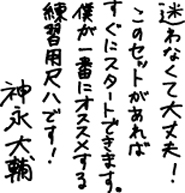 迷わなくて大丈夫！
このセットがあれば
すぐにスタートできます。
僕が一番にオススメする
練習用尺八です！
神永大輔